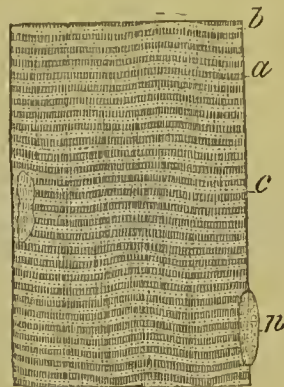 b
a
c
n